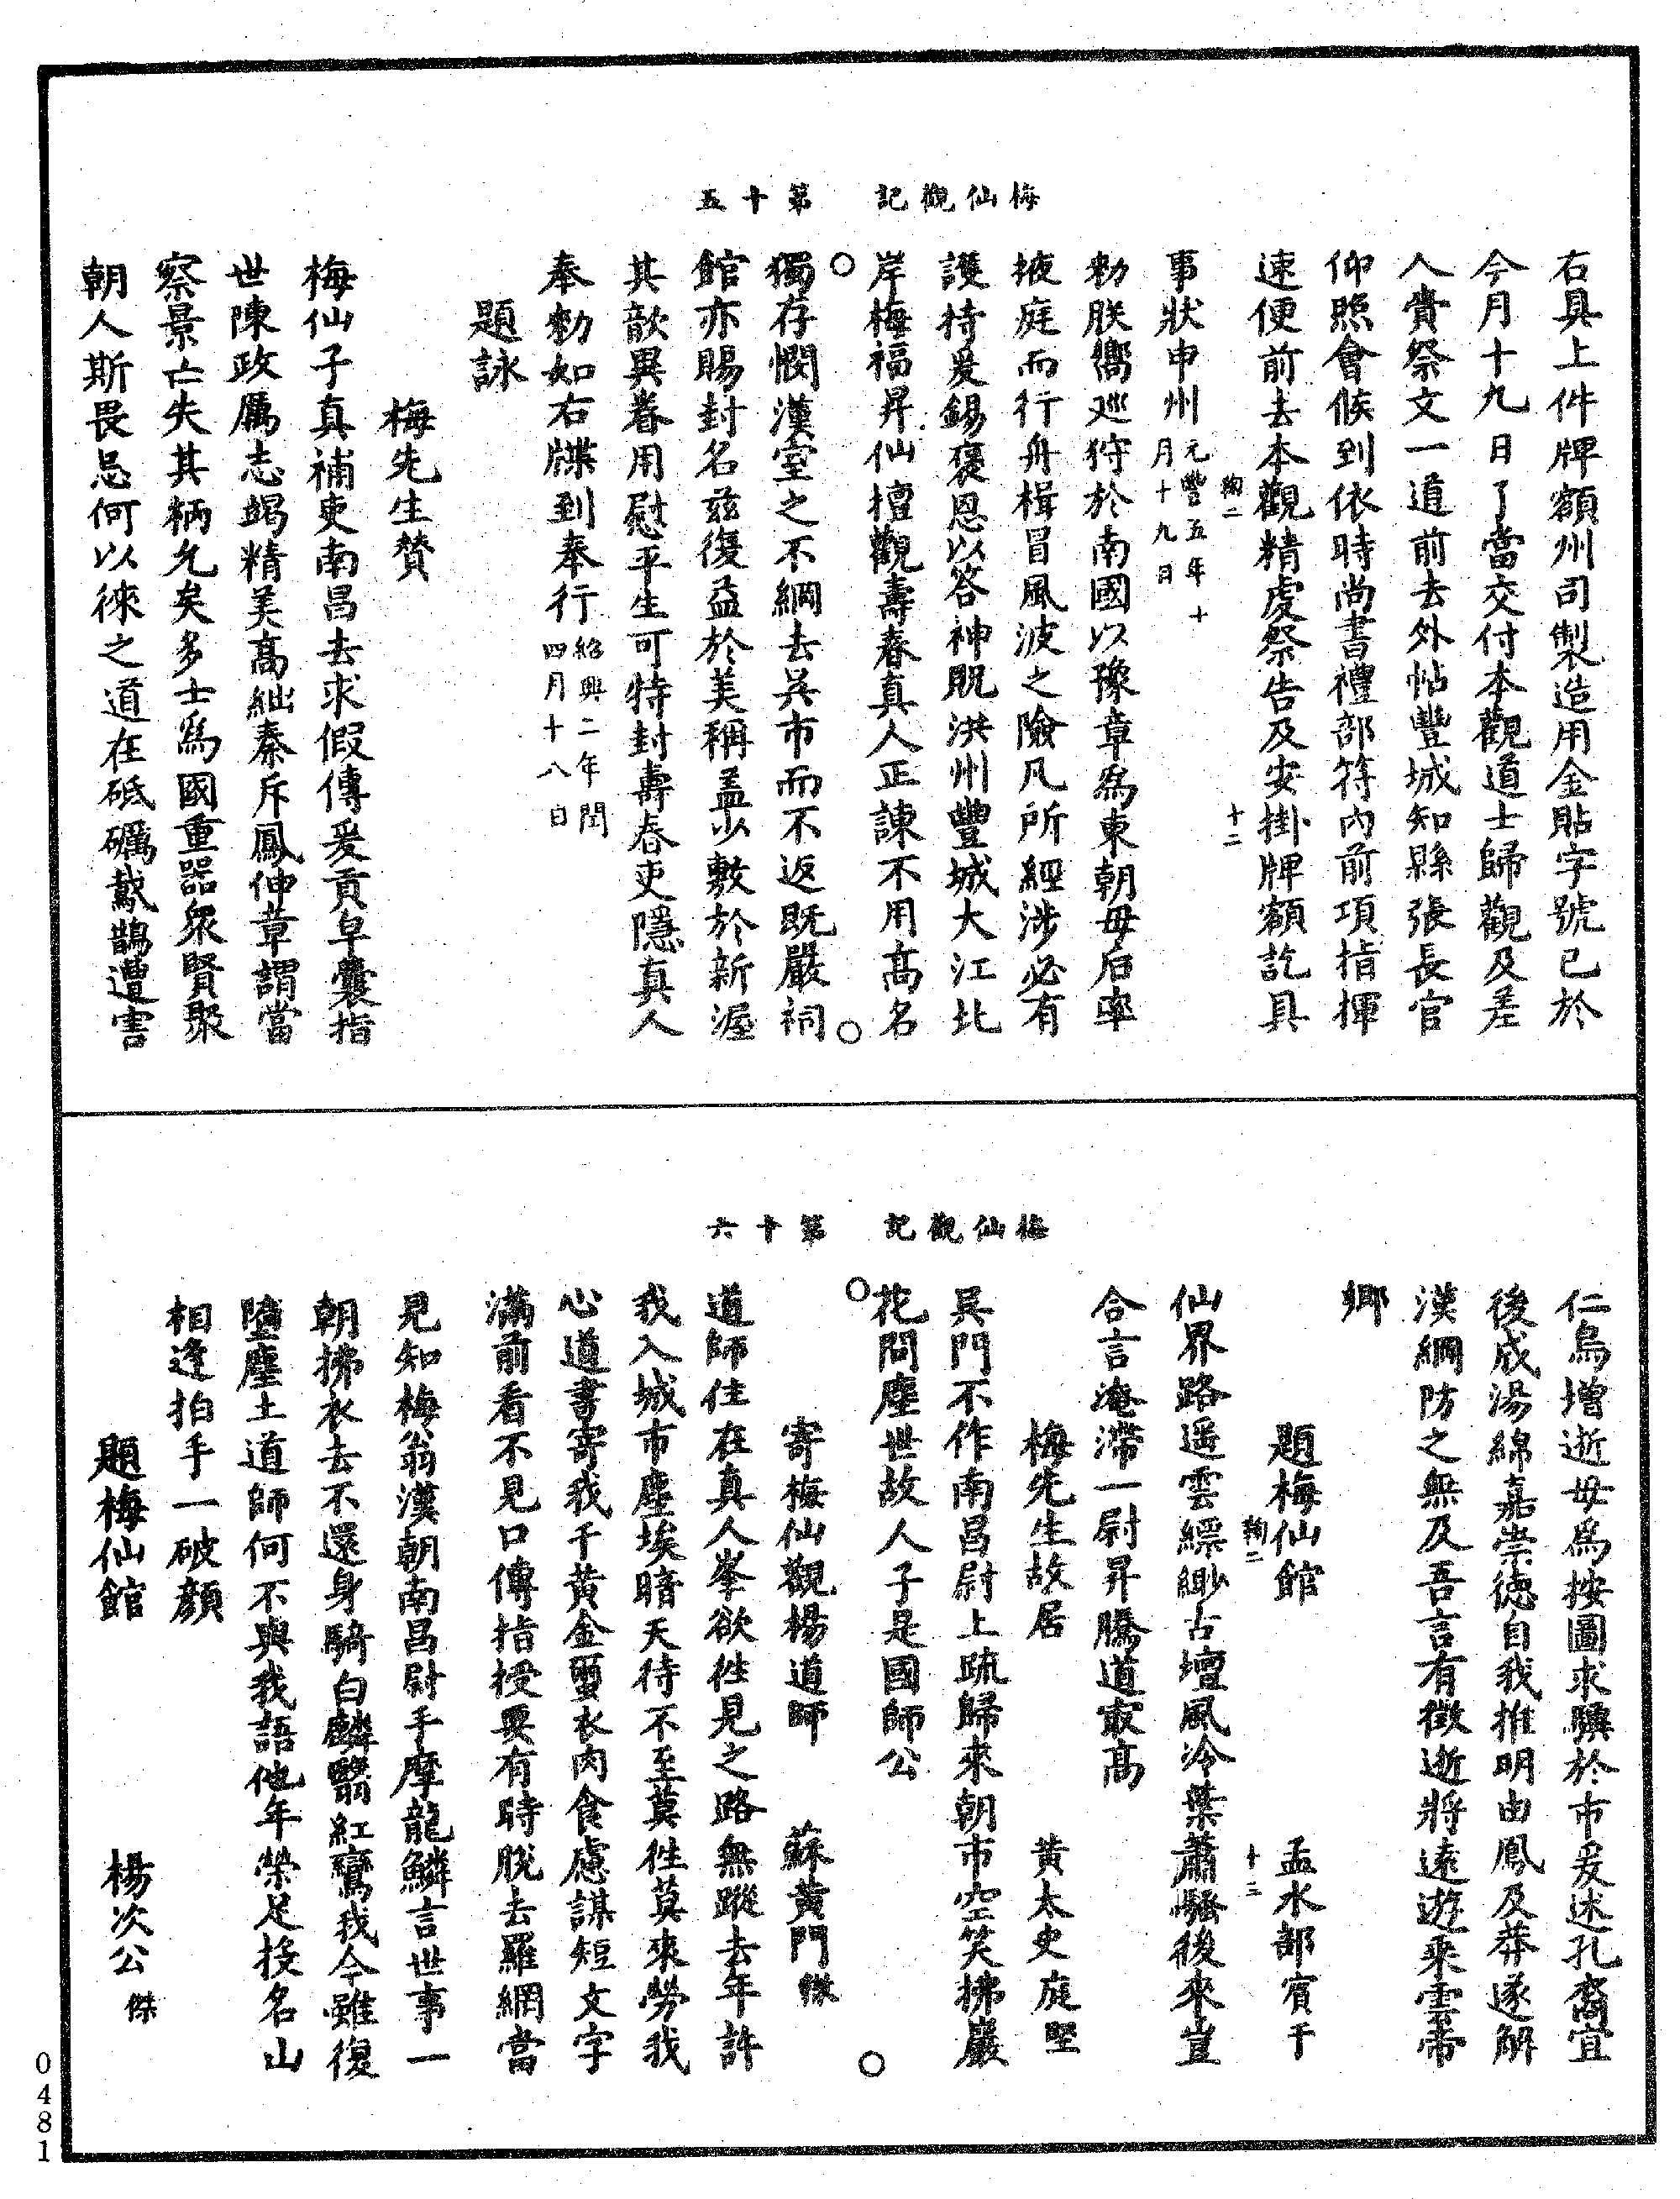 梅仙觀記　第十五
右具上件牌額州司製造用金貼字號已於
今月十九日了當交付本觀道士歸觀及差
人賫祭文一道前去外帖豐城知縣張長官
仰照會候到依時尚書禮部符内前項指揮
速便前去本觀精虔祭告及安掛牌額訖具
鞠二　十二
事狀申州元豐五年十
月十九日
勑朕嚮廵狩於南國以豫章為東朝毋后率
掖庭而行舟楫冒風波之險凡所經涉必有
護持爰錫褒恩以答神貺洪州豐城大江北
岸梅福昇仙壇觀壽春真人正諫不用高名
獨存憫漢室之不綱去吳市而不返既嚴祠
館亦賜封名兹復益於美稱盖以敷於新渥
其歆異眷用慰平生可特封壽春吏隱真人
奉勑如右牒到奉行紹興二年閏
四月十八日
題詠
梅先生贊
梅仙子真補吏南昌去求假傳爰貢皁囊指
世陳政厲志竭精美高絀秦斥鳳伸章謂當
察景亡失其柄允矣多士為國重器衆賢聚
朝人斯畏忌何以徠之道在砥礪䳒鵲遭害
梅仙觀記　第十六
仁鳥增逝毋為按圖求驥於市爰述孔裔宜
後成湯綿嘉崇德自我推明由鳳及莽遂解
漢綱防之無及吾言有徵逝將遠遊乘雲帝
鄉
題梅仙館　孟水部賓于
鞠二　十三
仙界路遥雲縹緲古壇風冷葉蕭騷後來豈
合言淹滯一尉昇騰道㝡高
梅先生故居　黄太史庭堅
吳門不作南昌尉上疏歸來朝市空笑拂巖
花問塵世故人子是國師公
寄梅仙觀楊道師　蘇黄門轍
道師住在真人峯欲徃見之路無蹤去年許
我入城市塵埃暗天待不至莫徃莫來勞我
心道書寄我千黄金蠒衣肉食慮謀短文字
滿前看不見口傳指授要有時脱去羅網當
見知梅翁漢朝南昌尉手摩龍鱗言世事一
朝拂衣去不還身騎白麟翳紅鸞我今雖復
墮塵土道師何不與我語他年榮足投名山
相逢拍手一破顔
題梅仙館　楊次公傑
0481